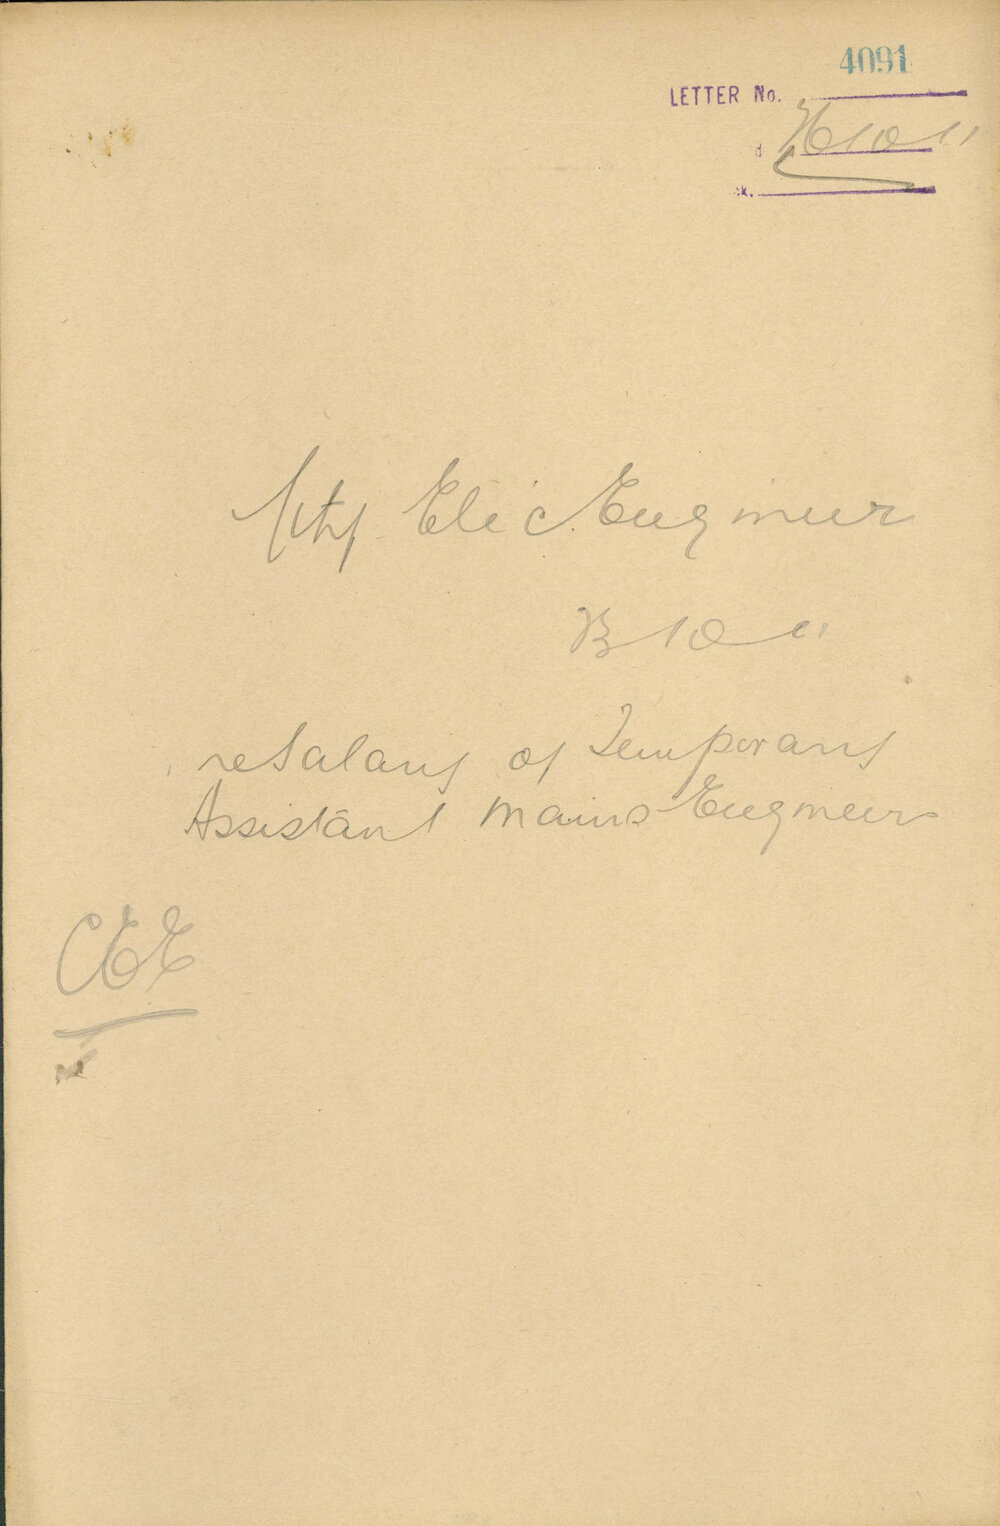 4091
LETTER No.
City Elec. Engineer
13/10/11
re Salary of Temporary
Assistant Mains Engineer
CEE